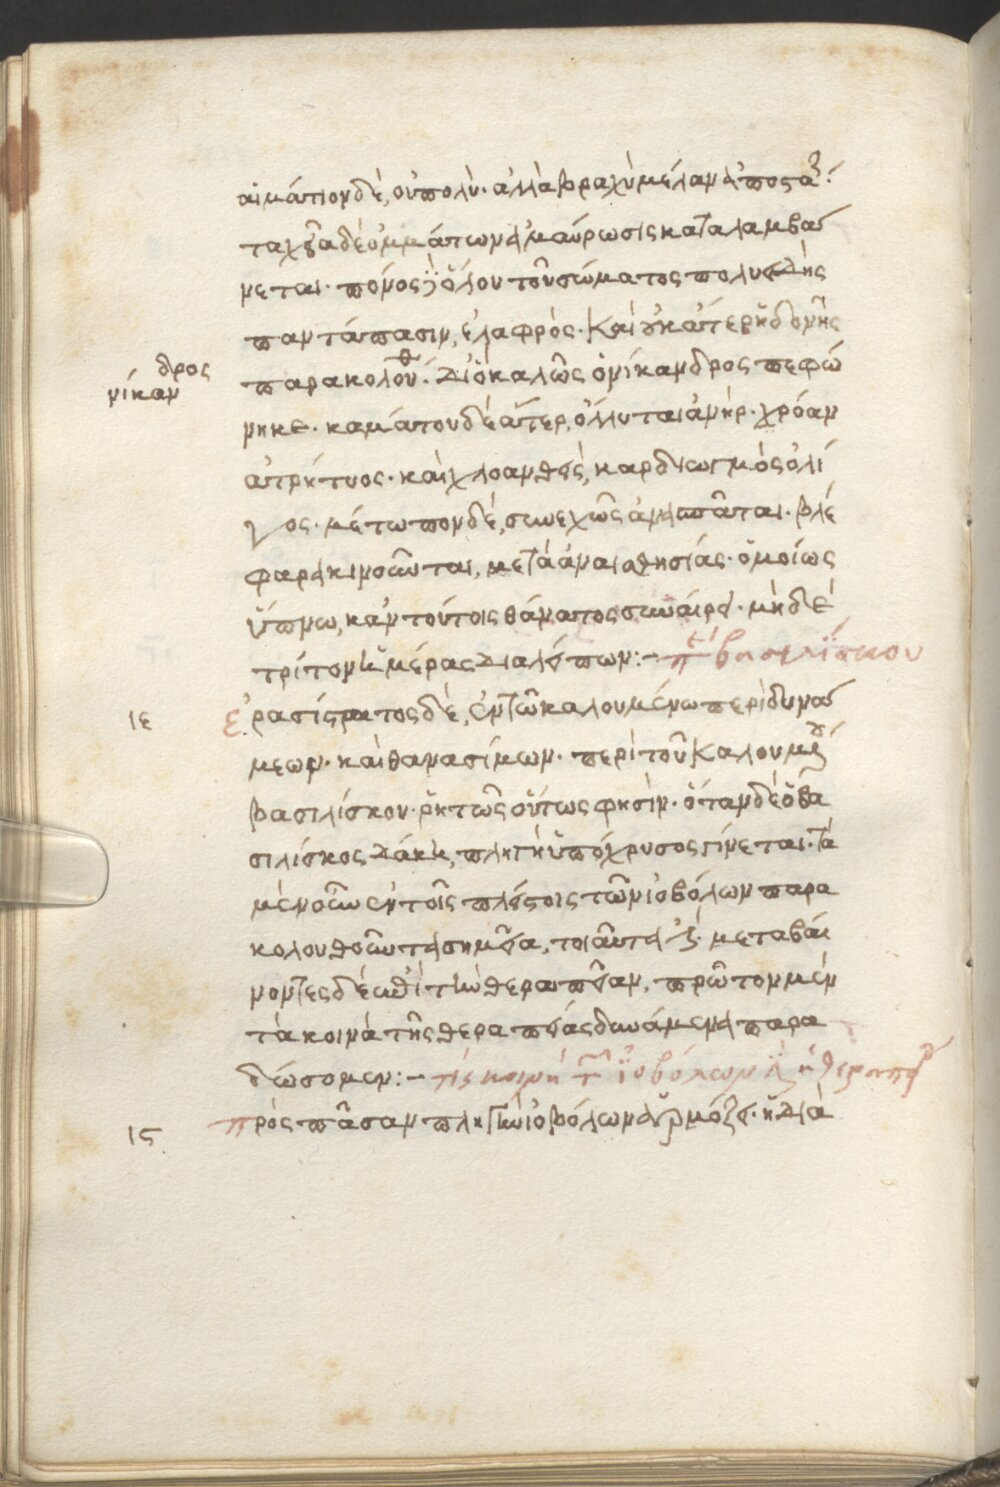 αἱμάτιον δὲ, οὐ πολὺ· ἀλλὰ βραχὺ μέλαν ἀποστάζ(ει)·
ταχεῖα δὲ ὀμμάτων ἀμαύρωσις καταλαμβά
νεται· πόνος ὅλου τοῦ σώματος πολυειδὴς
παντάπασιν, ἐλαφρὸς· καὶ οὐκ ἄτερ ἡδονῆς
δρος
νίκαν
παρακολουθ· διὸ καλῶς ὁ νίκανδρος πεφώ
νηκε· καμάτου δὲ ἄτερ, ὄλλυται ἀνήρ· χρόαν
καὶ χλοανθὲς, καρδιωγμὸς ὀλί
γος· μέτωπον δὲ, συνεχῶς ἀνασπᾶται· βλέ
φαρα κινοῦνται, μετὰ ἀναισθησίας· ὁμοίως
ὕπνω, κἀν τούτοις θάνατος συναίρει· μηδὲ
τρίτον ἡμέρας διαλείπων:- π βασιλίσκου
ιε
ἐρασίστρατος δὲ, ἐν τῶ καλουμένω περὶ δυνά
μεων· καὶ θανασίμων· περὶ τοῦ καλουμέν
βασιλίσκου· ῥητῶς οὕτως φησὶν· ὅταν δὲ ὁ βα
σιλίσκος δάκη, πληγὴ ὑπόχρυσος γίνεται· τὰ
μὲν οὖν ἐν τοῖς πλείστοις τῶν ἰοβόλων παρα
κολουθοῦντα σημεῖα, τοιαῦτα μεταβαί
νοντες δὲ ἐπὶ τὴν θεραπείαν, πρῶτον μὲν
τὰ κοινὰ τῆς θεραπείας δυνάμενα παρα
δώσομεν:- τίς κοινὴ τ ἰοβόλων θεραπεία
ις
πρὸς πᾶσαν πληγὴν ἰοβόλων ἁρμόζει· ἡ διὰ